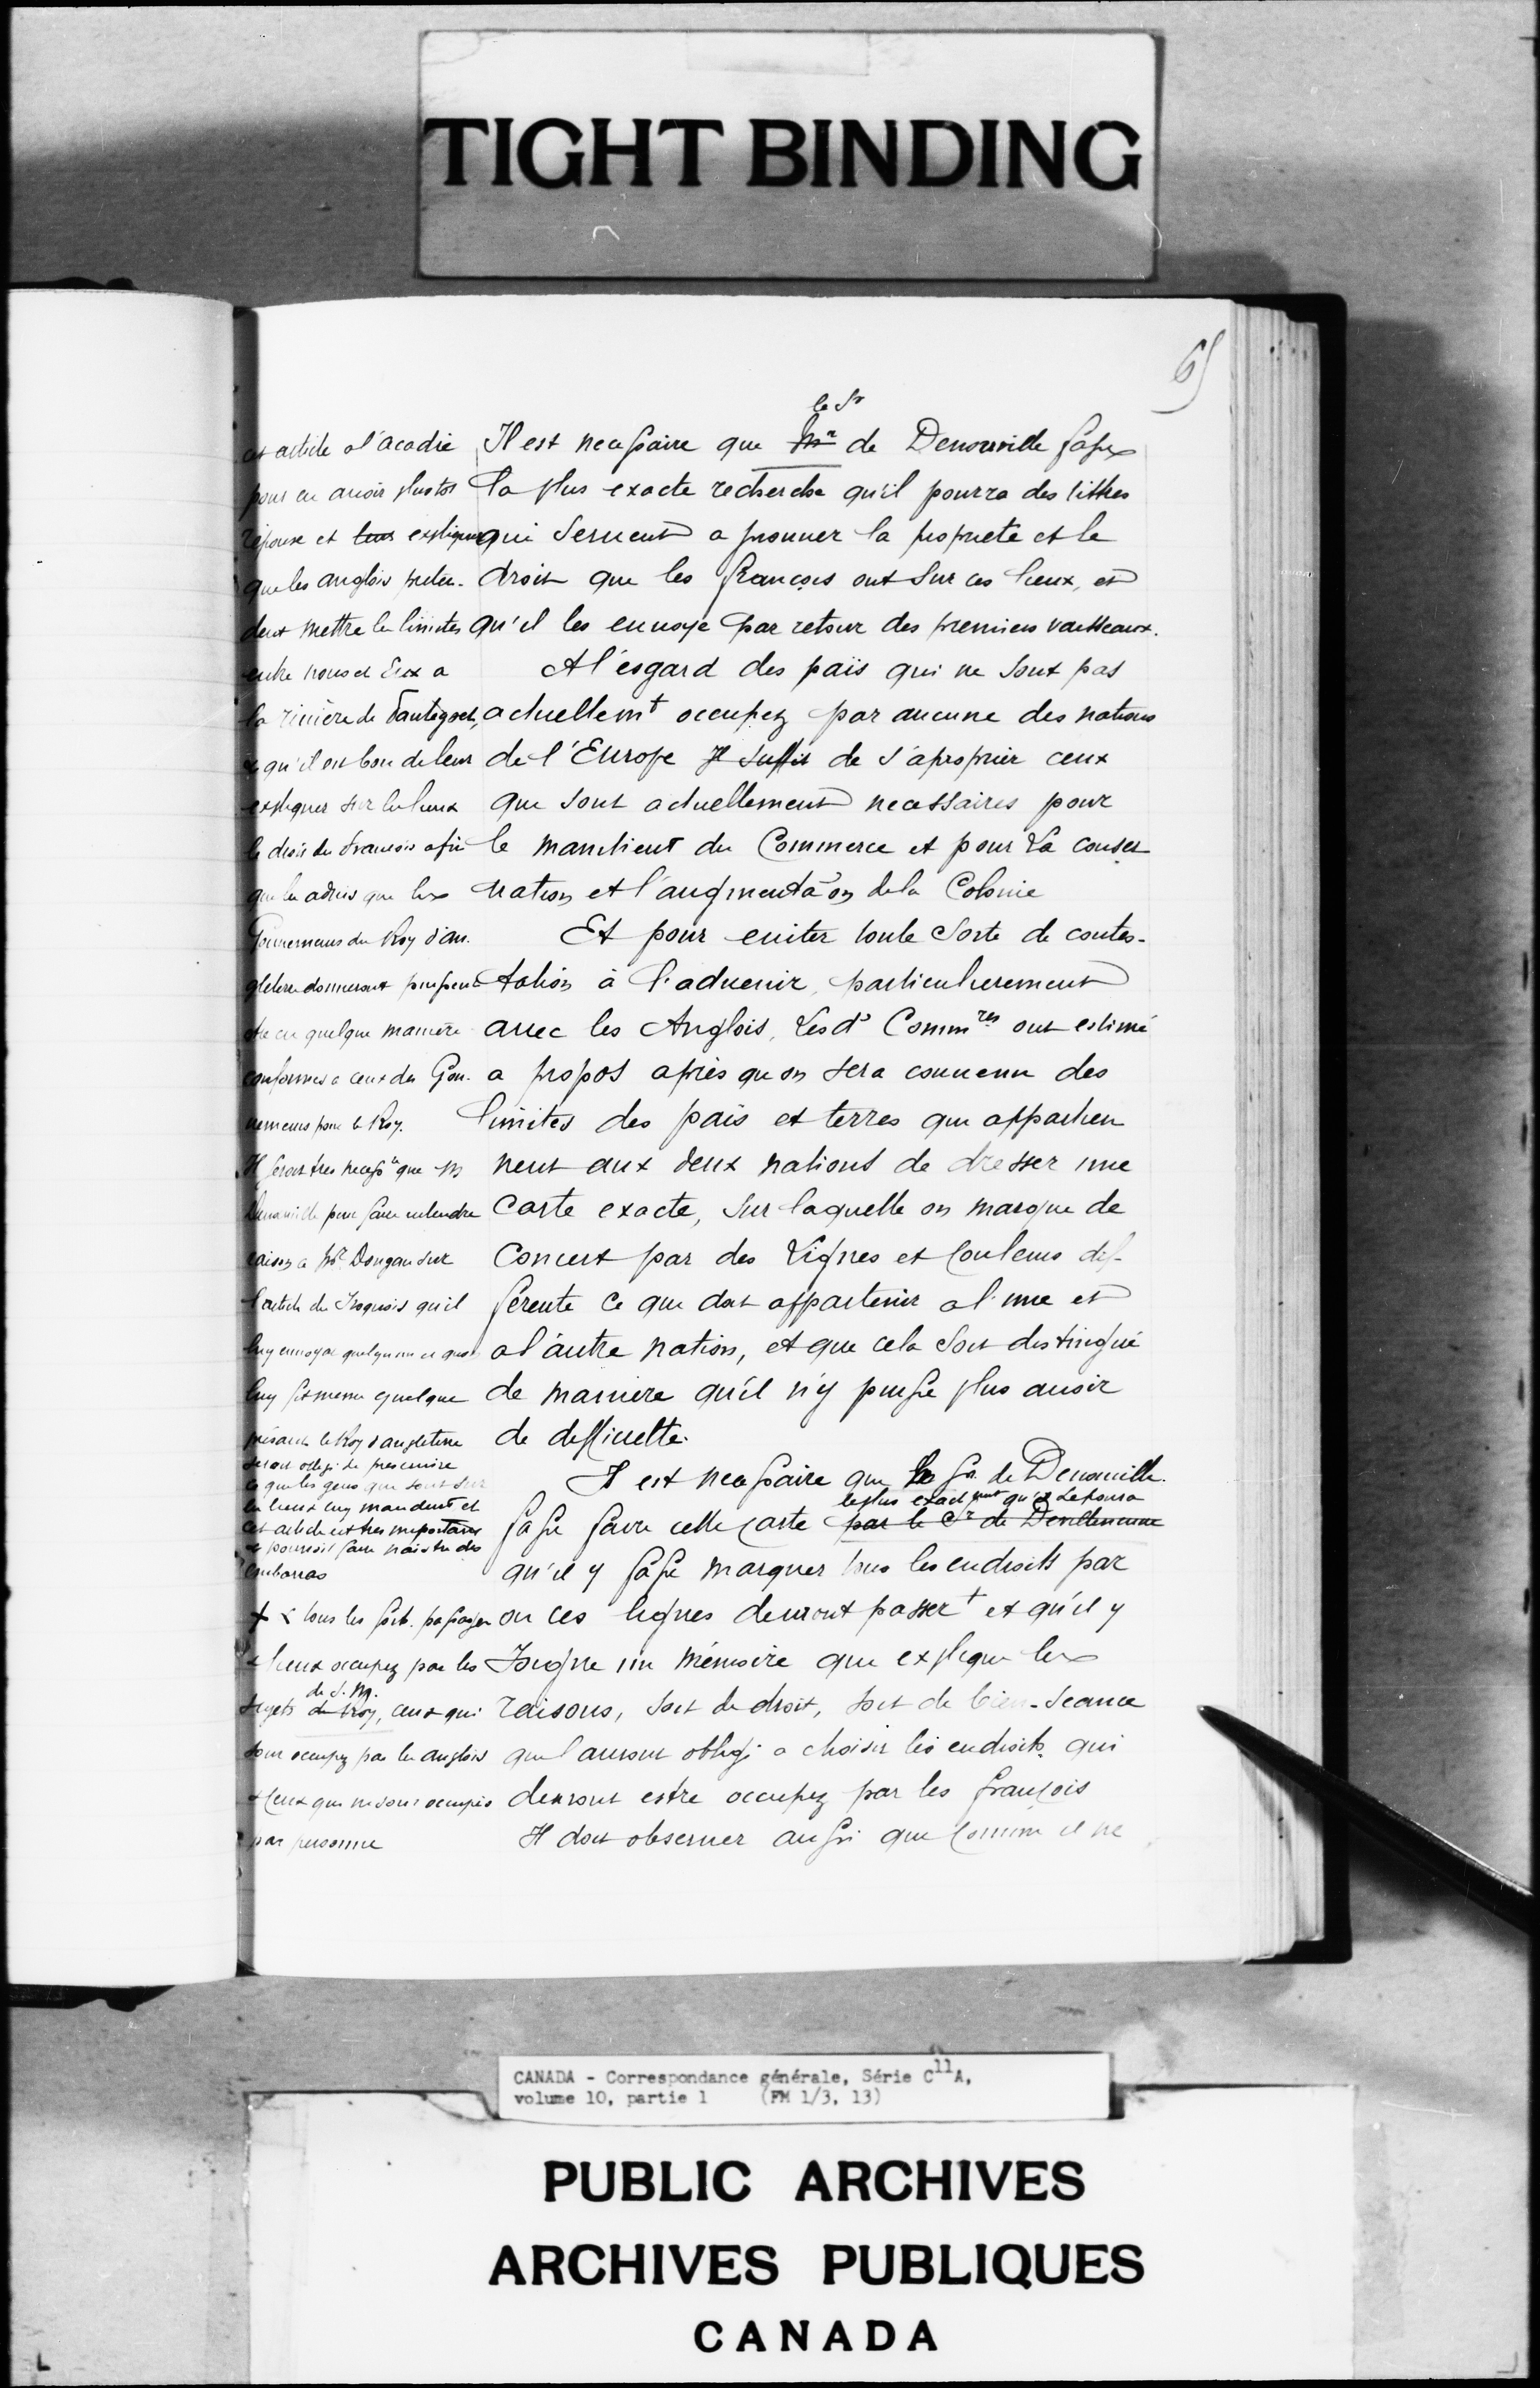 TIGHT BINDING
65
le Sr
Il est necessaire que Mr de Denonville fasse
la plus exacte recherche qu'il pourra des tittres
qui seruent a prouuer la propriete et le
droit que les françois ont sur ces lieux, et
qu'il les enuoye par retour des premiers vaisseaux.
A l'esgard des païs qui ne sont pas
actuellemt occupez par aucune des nations
de l'Europe Il suffit de s'aproprier ceux
qui sont actuellement necessaires pour
le maintient du Commerce et pour La conser
uation et l'augmentaon de la Colonie
Et pour euiter toute sorte de contes-
tation à l'aduenir, particulierement
auec les Anglois, Les ds Commres ont estimé
a propos après qu'on sera conuenu des
limites des païs et terres qui appartien
nent aux deux nations de dresser une
Carte exacte, sur laquelle on marque de
Concert par des Lignes et Couleurs dif-
ferente ce qui doit appartenir a l'une et
a l'autre nation, et que cela soit distingué
de maniere qu'il n'y puisse plus auoir
de difficulté.
Il est necessaire que le Sr. de Denonuille.
le plus exactmt qu'il le poura
fasse faire cette carte par le Sr de
qu'il y fasse marquer tous les endroits par
ou ces lignes deuront passer + et qu'il y
Joigne un mémoire qui explique les
raisons, soit de droit, soit de bien-seance
qui l'auront obligé a choisir les endroits qui
deuront estre occupez par les françois
Il doit obseruer aussi que Comme il ne
cet article a l'acadie
pour en auoir plustot
réponse et leur expliquer
que les anglois préten-
dent mettre les limites
entre nous et Eux a
la riuière de Pantegoet,
et qu'il est bon de leur
expliquer sur les lieux
le droit des francois afin
que les aduis que les
Gouuerneurs du Roy d'an-
gleterre donneront puissent
estre en quelque manière
conformes a ceux des Gou-
uerneurs pour le Roy.
Il seroit tres necessre que M
Denonuille pour faire entendre
raison a Mr. Dongan sur
l'article des Iroquois qu'il
luy enuoyat quelqu'un et qu'il
luy fit mesme quelque
présent le Roy d'angleterre
seront obligé de prescrire
ce que les gens qui sont sur
les lieux luy mandent et
cet article est tres important
et pourroit faire naistre des
embarras
+ & tous les forts. passages
& lieux occupez par les
de S. M.
sujets du Roy, ceux qui
sont occupez par les anglois
& Ceux qui ne sont occupés
par personne
CANADA - Correspondance générale, Série C11A,
volume 10, partie 1 (FM 1/3, 13)
PUBLIC ARCHIVES
ARCHIVES PUBLIQUES
CANADA